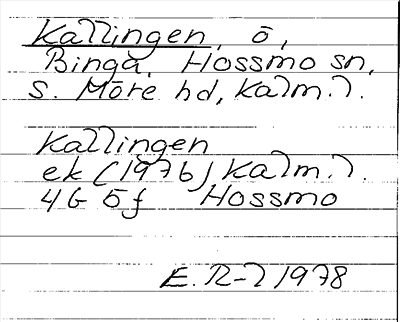 Kallingen, ö,
Binga, Hossmo sn,
S. Möre hd, Kalm.l.
Kallingen
ek (1976) Kalm.l.
4G 5f Hossmo
E. R-l 1978